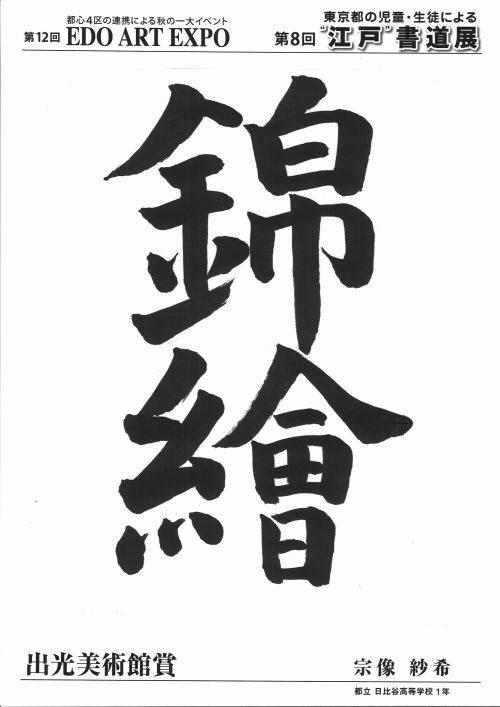 都心4区の連携による秋の一大イベント
第12回 EDO ART EXPO
東京都の児童・生徒による
第8回 “江戸”書道展
錦繪
出光美術館賞
宗像 紗希
都立 日比谷高等学校1年